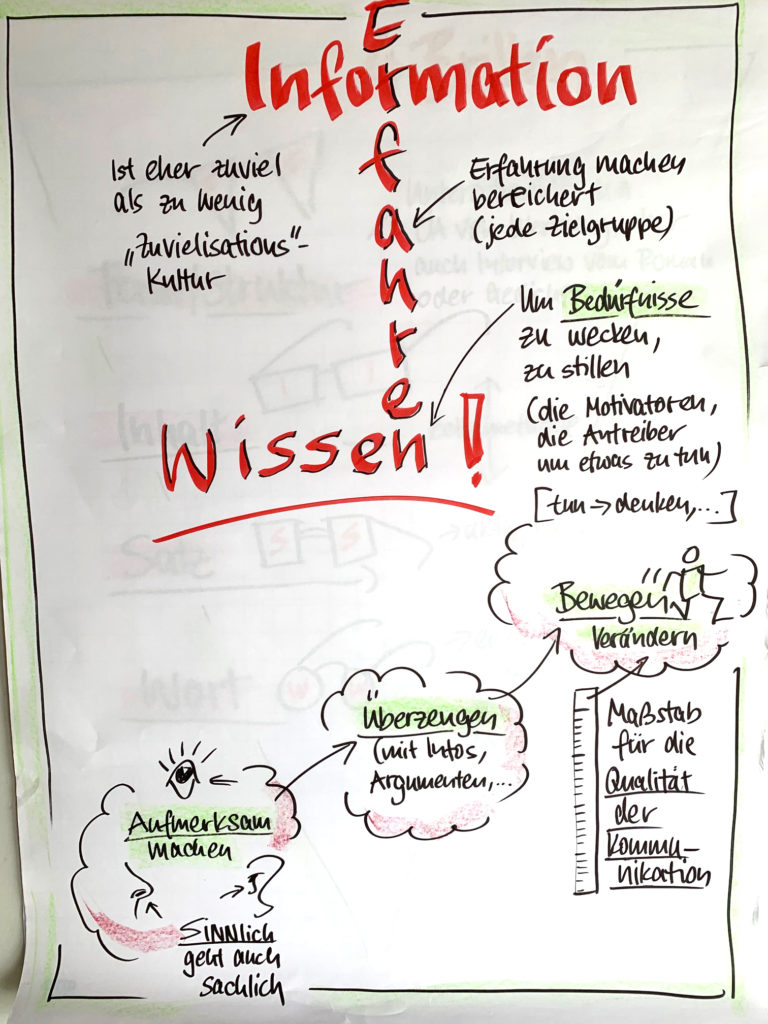 Information
Erfahren
Ist eher zuviel
als zu wenig
„Zuvielisations"-
Kultur
Erfahrung machen
berEichert
(jede Zielgruppe)
Um Bedürfnisse
zu wecken,
zu stillen
(die Motivatoren,
die Antreiber
um etwas zu tun)
[tun → denken,...]
Wissen!
Bewegen
Verändern
Überzeugen
(mit Infos,
Argumenten,...
Maßstab
für die
Qualität
der
Kommu-
nikation
Aufmerksam
machen
SINNlich
geht auch
sachlich
Inhalt
Satz
S S
Wort